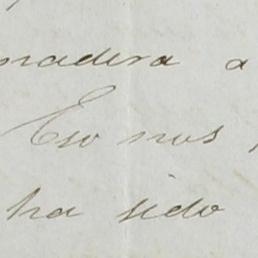 madera a
Eso nos
ha sido